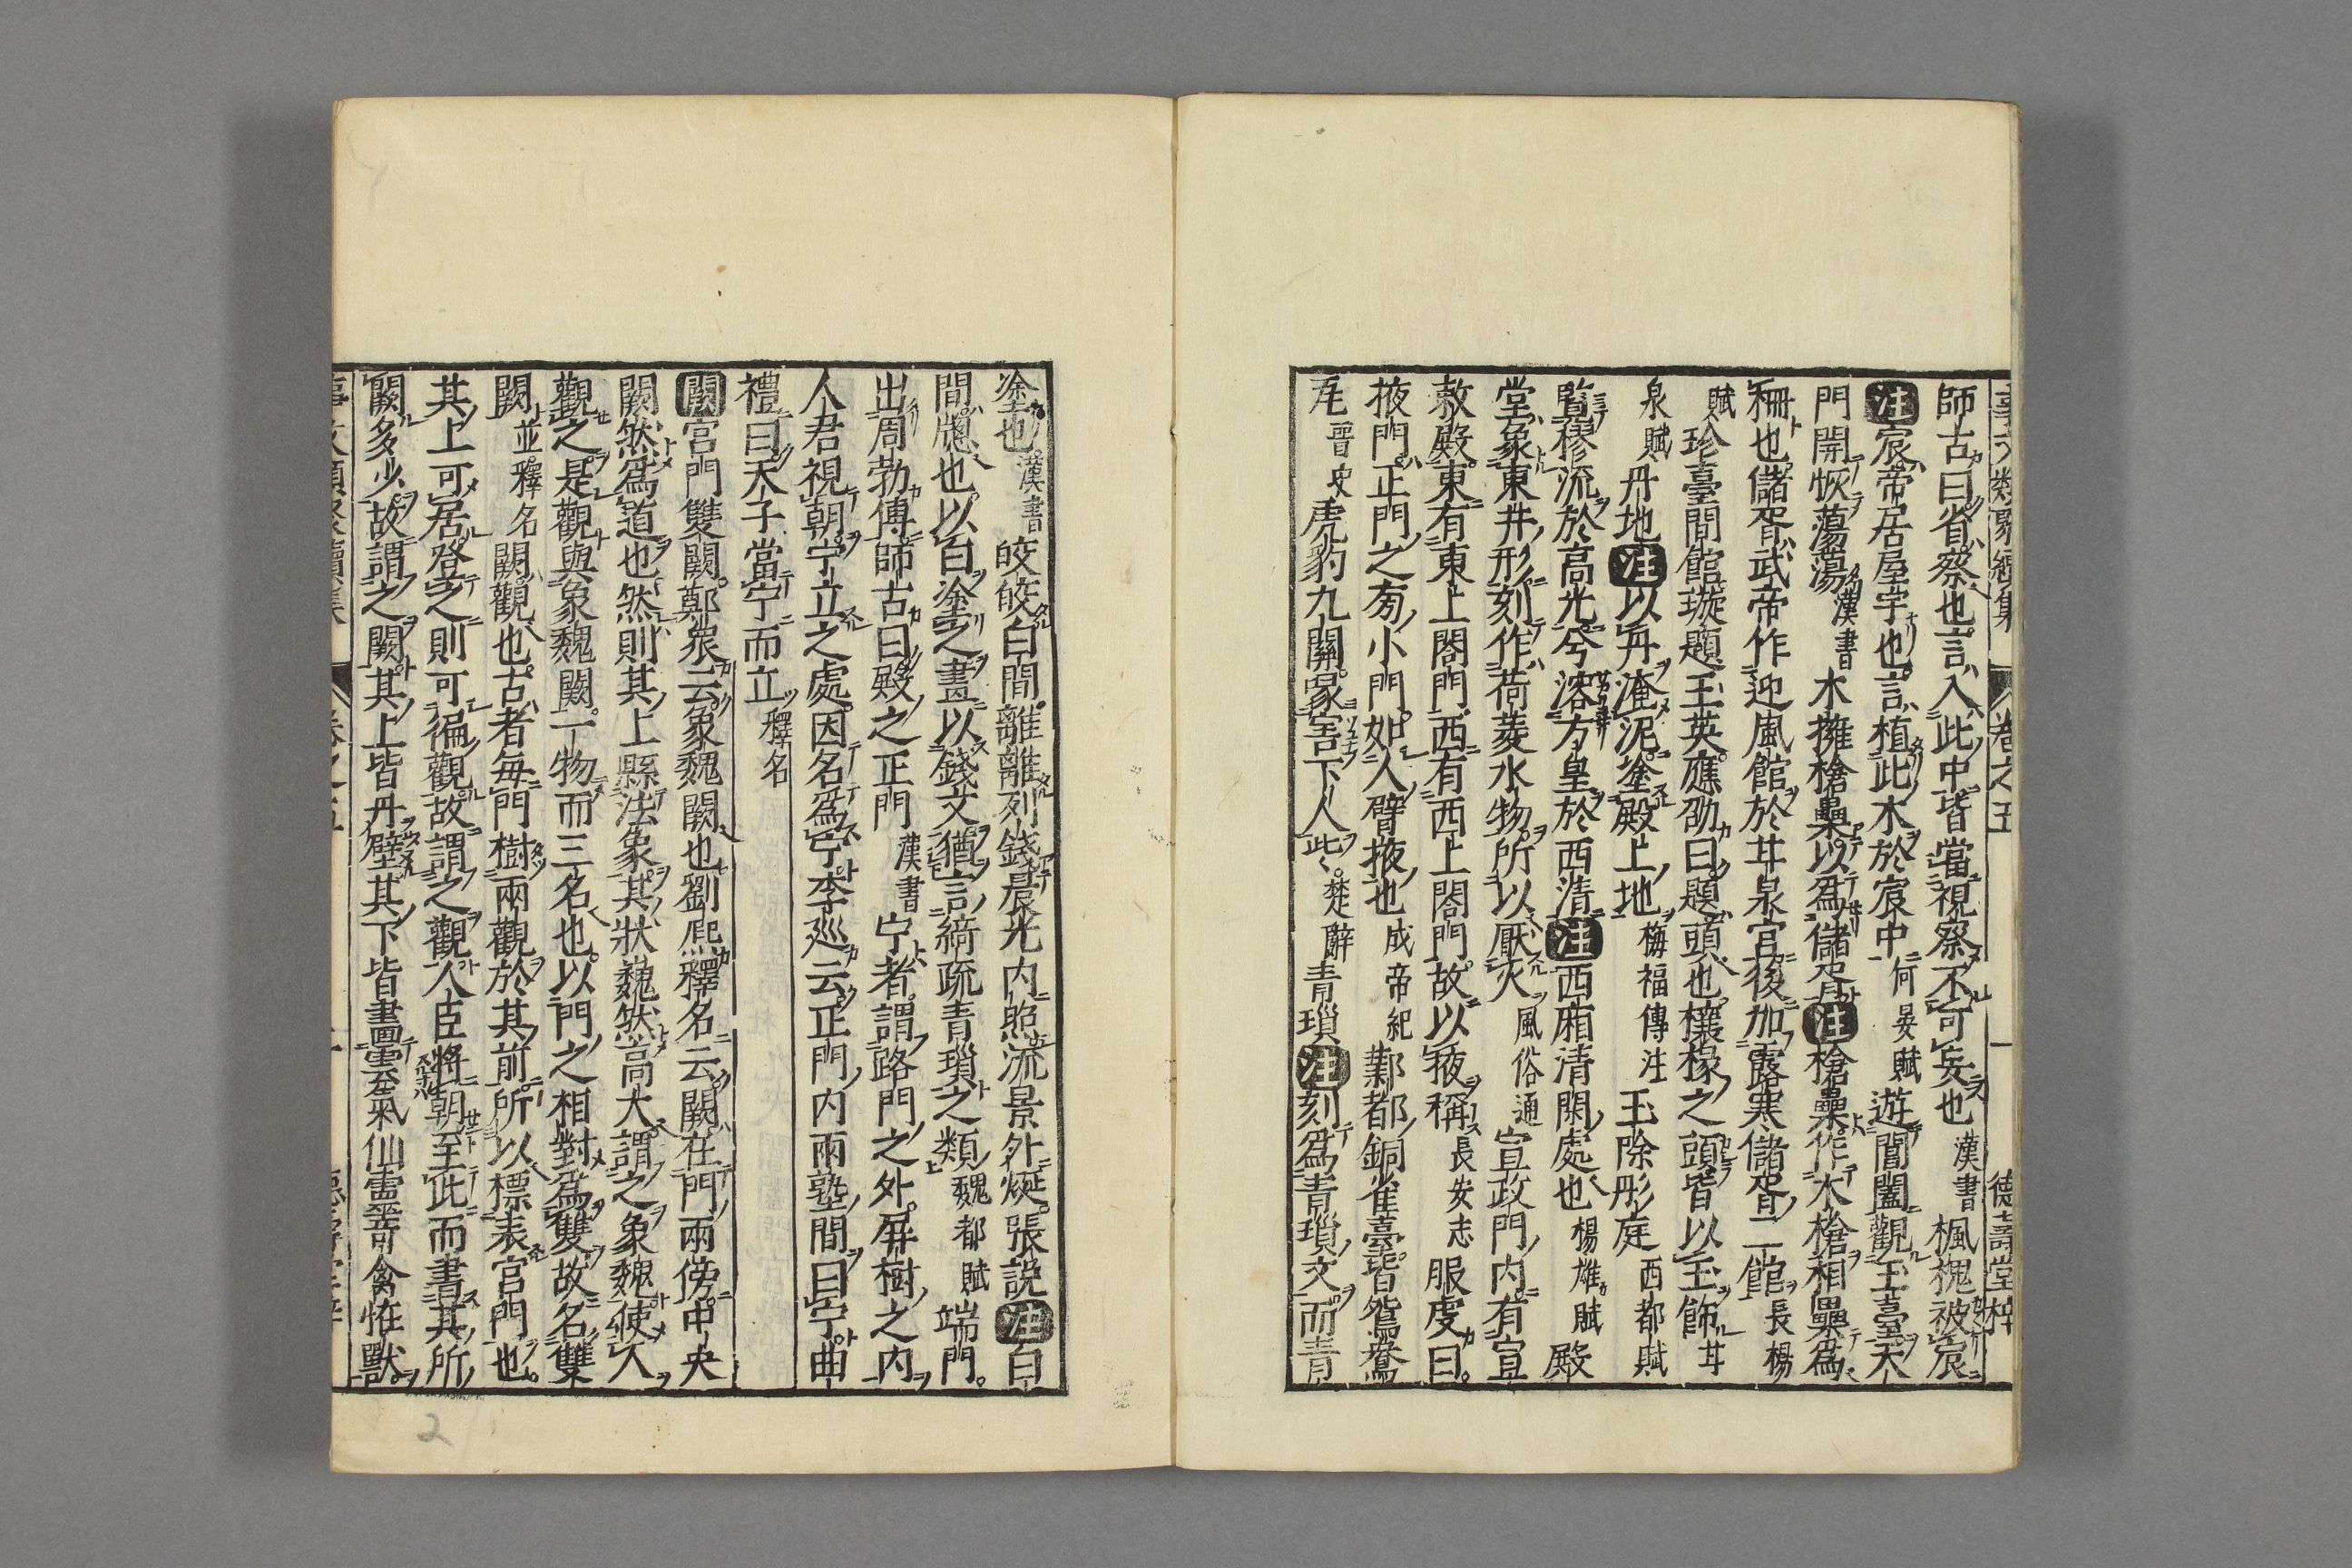 事文類聚續集 卷之五 一 德壽堂梓
師古曰省察也言入此中皆當視察不可妄也漢書楓槐被宸
注宸帝居屋宇也言植此木於宸中何晏賦遊閶闔觀玉臺天
門開恢蕩蕩漢書木擁槍纍以爲儲胥注槍纍作木槍相纍爲
柵也儲胥武帝作迎風館於甘泉宮後加露寒儲胥二館長楊
賦珍臺間館璇題玉英應劭曰題頭也欀椽之頭皆以玉飾甘
泉賦丹地注以丹淹泥塗殿上地梅福傳注玉除彤庭西都賦
覽樛流於高光兮溶方皇於西清注西廂清閑處也楊雄賦殿
堂象東井形刻作荷菱水物所以厭火風俗通宣政門内有宣
敎殿東有東上閤門西有西上閤門故以掖稱長安志服虔曰
掖門正門之㫄小門如人臂掖也成帝紀鄴都銅雀臺皆鴛鴦
瓦晉史虎豹九關啄害下人此楚辭青瑣注刻爲青瑣文而青
塗也漢書皎皎白間離離列錢晨光内照流景外烻張説注白
間牕也以白塗之畫以錢文猶言綺疏青瑣之類魏都賦端門
出周勃傳師古曰殿之正門漢書宁者謂路門之外屏樹之内
人君視朝宁立之處因名爲宁李廵云正門内兩塾間曰宁曲
禮曰天子當宁而立釋名
闕宮門雙闕鄭衆云象魏闕也劉熈釋名云闕在門兩傍中央
闕然爲道也然則其上縣法象其狀魏然高大謂之象魏使人
觀之是觀與象魏闕一物而三名也以門之相對爲雙故名雙
闕並釋名闕觀也古者每門樹兩觀於其前所以標表宮門也
其上可居登之則可徧觀故謂之觀人臣將朝至此而書其所
闕多少故謂之闕其上皆丹壁其下皆畫雲氣仙靈奇禽恠獸